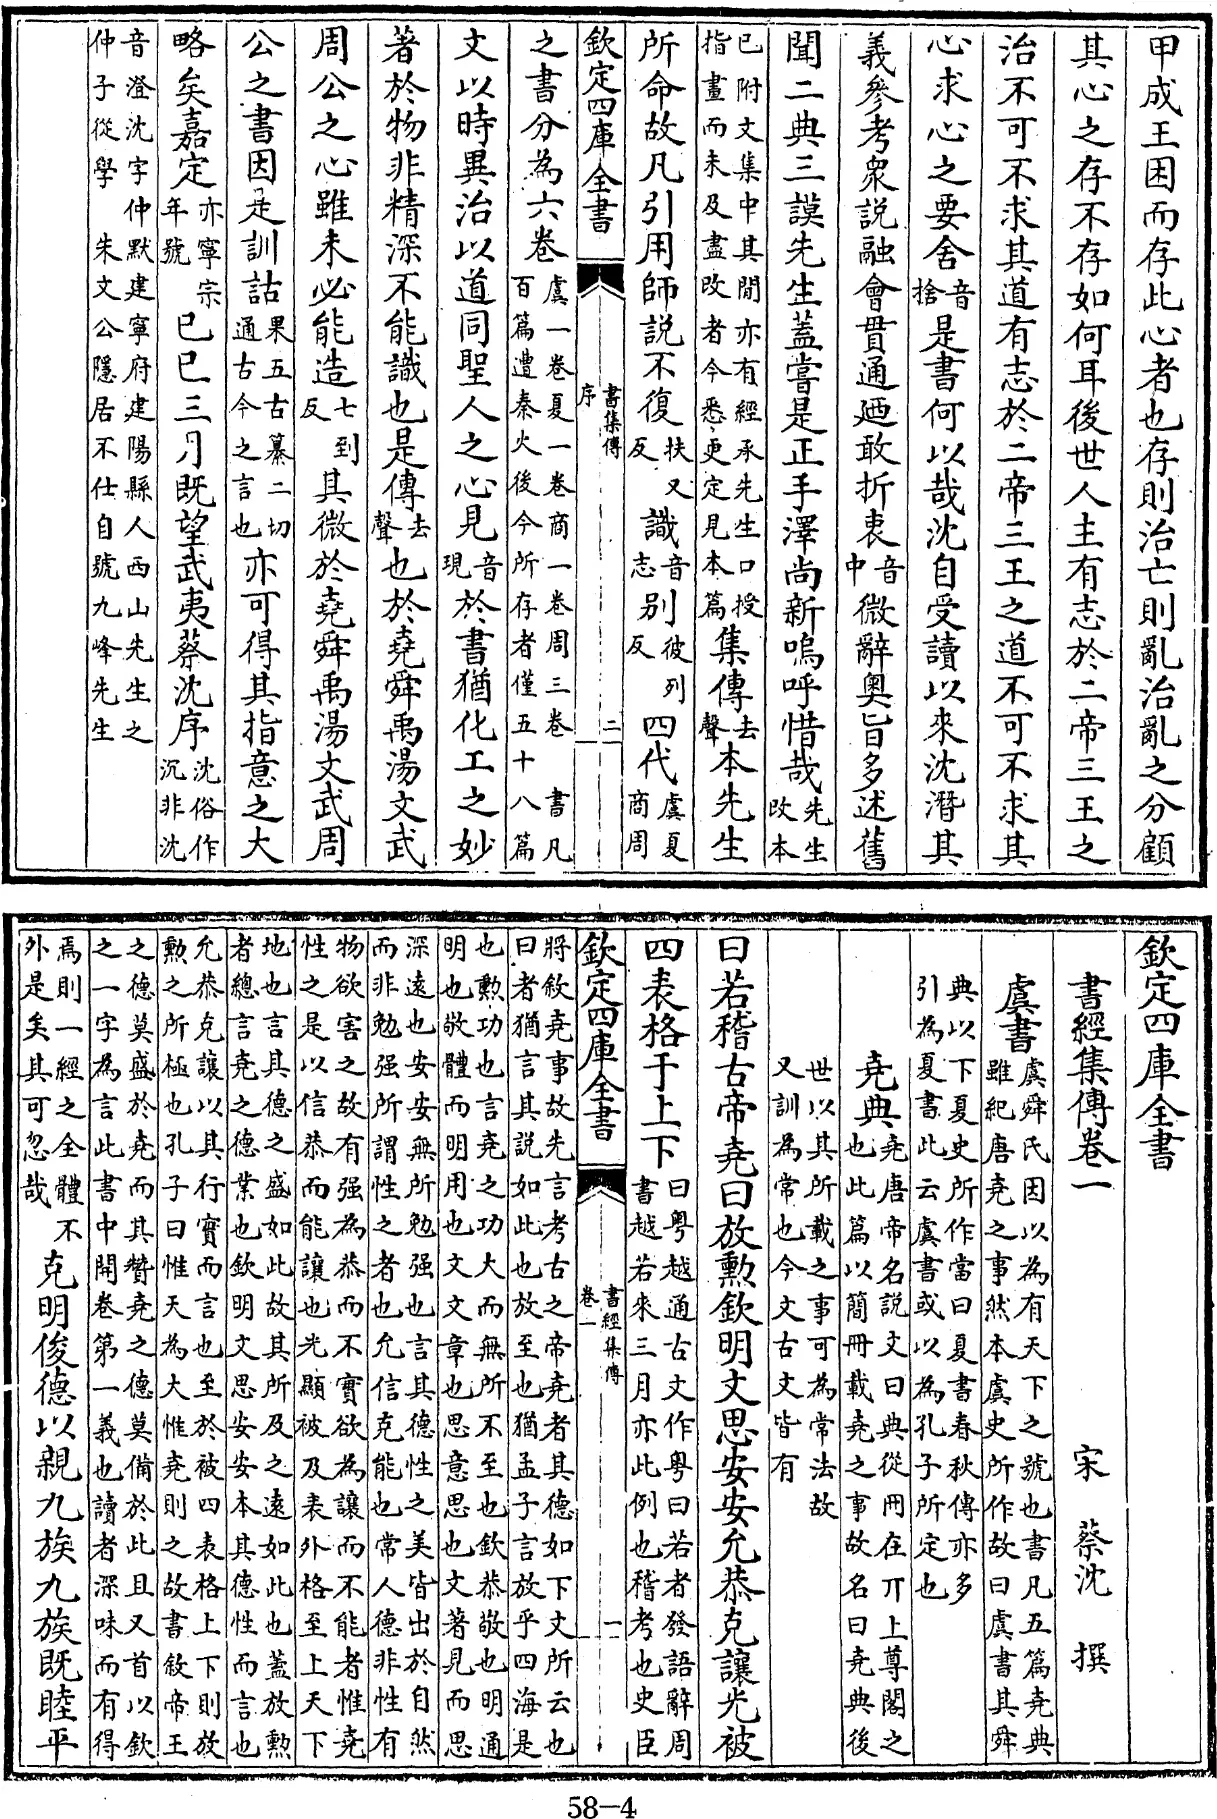 甲成王困而存此心者也存則治亡則亂治亂之分顧
其心之存不存如何耳後世人主有志於二帝三王之
治不可不求其道有志於二帝三王之道不可不求其
心求心之要舍音捨是書何以哉沈自受讀以來沈潛其
義參考衆說融會貫通廼敢折衷音中微辭奧旨多述舊
聞二典三謨先生蓋嘗是正手澤尚新嗚呼惜哉先生改本
已附文集中其間亦有經承先生口授指畫而未及盡改者今悉更定見本篇集傳去聲本先生
所命故凡引用師說不復扶又反識音志別彼列反四代虞夏商周
欽定四庫全書 書集傳 序 二
之書分為六卷虞一卷夏一卷商一卷周三卷 書凡百篇遭秦火後今所存者僅五十八篇
文以時異治以道同聖人之心見音現於書猶化工之妙
著於物非精深不能識也是傳去聲也於堯舜禹湯文武
周公之心雖未必能造七到反其微於堯舜禹湯文武周
公之書因是訓詁果五古慕二切通古今之言也亦可得其指意之大
略矣嘉定亦寧宗年號已巳三月既望武夷蔡沈序沈俗作沉非沈
音澄沈字仲默建寧府建陽縣人西山先生之仲子從學 朱文公隱居不仕自號九峰先生
欽定四庫全書
書經集傳卷一 宋 蔡沈 撰
虞書虞舜氏因以為有天下之號也書凡五篇堯典雖紀唐堯之事然本虞史所作故曰虞書其舜
典以下夏史所作當曰夏書春秋傳亦多引為夏書此云虞書或以為孔子所定也
堯典堯唐帝名說文曰典從冊在丌上尊閣之也此篇以簡冊載堯之事故名曰堯典後
世以其所載之事可為常法故又訓為常也今文古文皆有
曰若稽古帝堯曰放勲欽明文思安安允恭克讓光被
四表格于上下曰粤越通古文作粤曰若者發語辭周書越若來三月亦此例也稽考也史臣
欽定四庫全書 書經集傳 卷一 一
將敘堯事故先言考古之帝堯者其德如下文所云也曰者猶言其說如此也放至也猶孟子言放乎四海是
也勲功也言堯之功大而無所不至也欽恭敬也明通明也敬體而明用也文文章也思意思也文著見而思
深遠也安安無所勉强也言其德性之美皆出於自然而非勉强所謂性之者也允信克能也常人德非性有
物欲害之故有强為恭而不實欲為讓而不能者惟堯性之是以信恭而能讓也光顯被及表外格至上天下
地也言其德之盛如此故其所及之遠如此也蓋放勲者總言堯之德業也欽明文思安安本其德性而言也
允恭克讓以其行實而言也至於被四表格上下則放勲之所極也孔子曰惟天為大惟堯則之故書敘帝王
之德莫盛於堯而其贊堯之德莫備於此且又首以欽之一字為言此書中開卷第一義也讀者深味而有得
焉則一經之全體不外是矣其可忽哉克明俊德以親九族九族既睦平
58-4